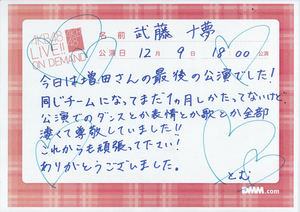 AKB48
LIVE!!
ON DEMAND
名前 武藤 十夢
公演日 12月9日 18:00公演
今日は増田さんの最後の公演でした!
同じチームになってまだ1ヵ月しかたってないけど、
公演でのダンスとか表情とか歌とか全部
凄くて尊敬していました!!
これからも頑張って下さい!
ありがとうございました。
とむ
DMM.com